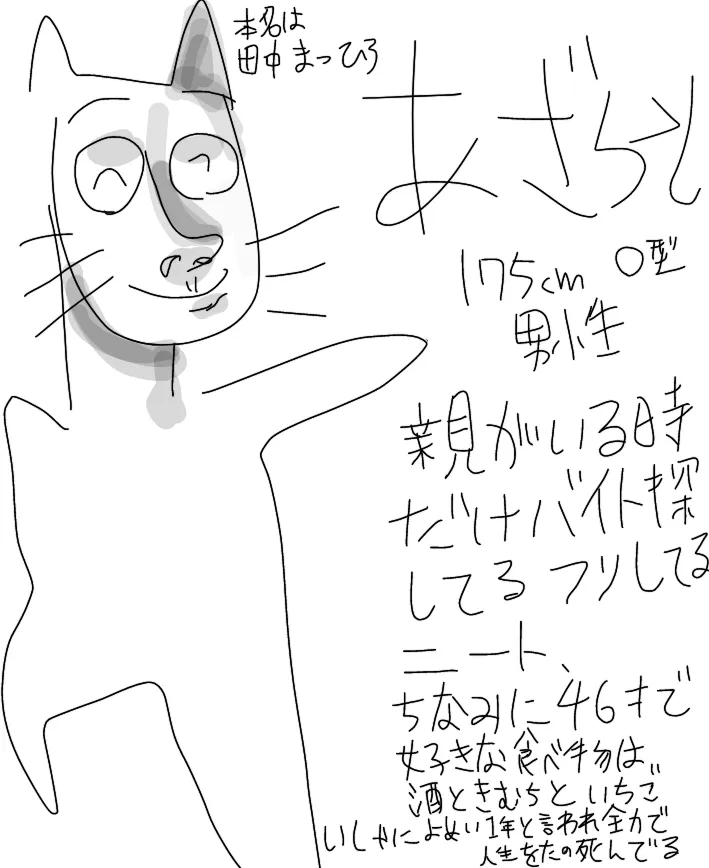 本名は
田中まっひろ
あざらし
175cm O型
男性
親がいる時
だけバイト探
してるフリしてる
ニート、
ちなみに46才で
好きな食べ物は、
酒ときむちといちご
いしゃによめい1年と言われ全力で
人生をたの死んでる